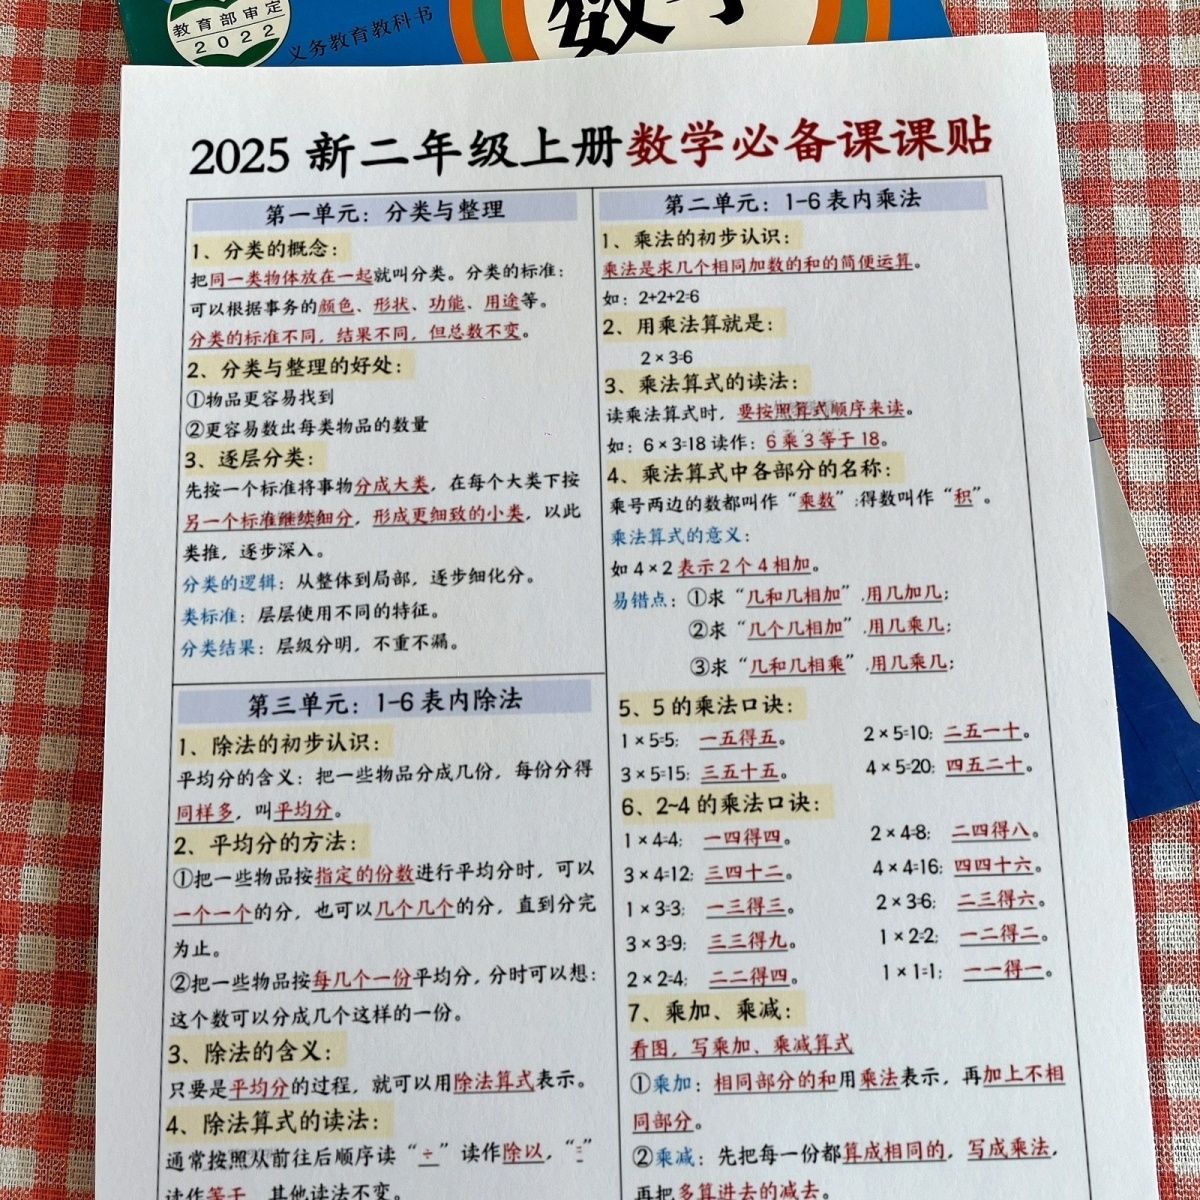 教育部审定
2022
义务教育教科书
数学
2025 新二年级上册数学必备课课贴
第一单元：分类与整理
1、分类的概念：
把同一类物体放在一起就叫分类。分类的标准：
可以根据事务的颜色、形状、功能、用途等。
分类的标准不同，结果不同，但总数不变。
2、分类与整理的好处：
①物品更容易找到
②更容易数出每类物品的数量
3、逐层分类：
先按一个标准将事物分成大类，在每个大类下按
另一个标准继续细分，形成更细致的小类，以此
类推，逐步深入。
分类的逻辑：从整体到局部，逐步细化分。
类标准：层层使用不同的特征。
分类结果：层级分明，不重不漏。
第三单元：1-6 表内除法
1、除法的初步认识：
平均分的含义：把一些物品分成几份，每份分得
同样多，叫平均分。
2、平均分的方法：
①把一些物品按指定的份数进行平均分时，可以
一个一个的分，也可以几个几个的分，直到分完
为止。
②把一些物品按每几个一份平均分，分时可以想：
这个数可以分成几个这样的一份。
3、除法的含义：
只要是平均分的过程，就可以用除法算式表示。
4、除法算式的读法：
通常按照从前往后顺序读“÷”读作除以，“=”
读作等于，其他读法不变。
第二单元：1-6 表内乘法
1、乘法的初步认识：
乘法是求几个相同加数的和的简便运算。
如：2+2+2=6
2、用乘法算就是：
2×3=6
3、乘法算式的读法：
读乘法算式时，要按照算式顺序来读。
如：6×3=18 读作：6 乘 3 等于 18。
4、乘法算式中各部分的名称：
乘号两边的数都叫作“乘数”;得数叫作“积”。
乘法算式的意义：
如 4×2 表示 2 个 4 相加。
易错点：①求“几和几相加”,用几加几；
②求“几个几相加”,用几乘几；
③求“几和几相乘”,用几乘几；
5、5 的乘法口诀：
1×5=5; 一五得五。 2×5=10; 二五一十。
3×5=15; 三五十五。 4×5=20; 四五二十。
6、2~4 的乘法口诀：
1×4=4; 一四得四。 2×4=8; 二四得八。
3×4=12; 三四十二。 4×4=16; 四四十六。
1×3=3; 一三得三。 2×3=6; 二三得六。
3×3=9; 三三得九。 1×2=2; 一二得二。
2×2=4; 二二得四。 1×1=1; 一一得一。
7、乘加、乘减：
看图，写乘加、乘减算式
①乘加：相同部分的和用乘法表示，再加上不相
同部分。
②乘减：先把每一份都算成相同的，写成乘法，
再把多算进去的减去。